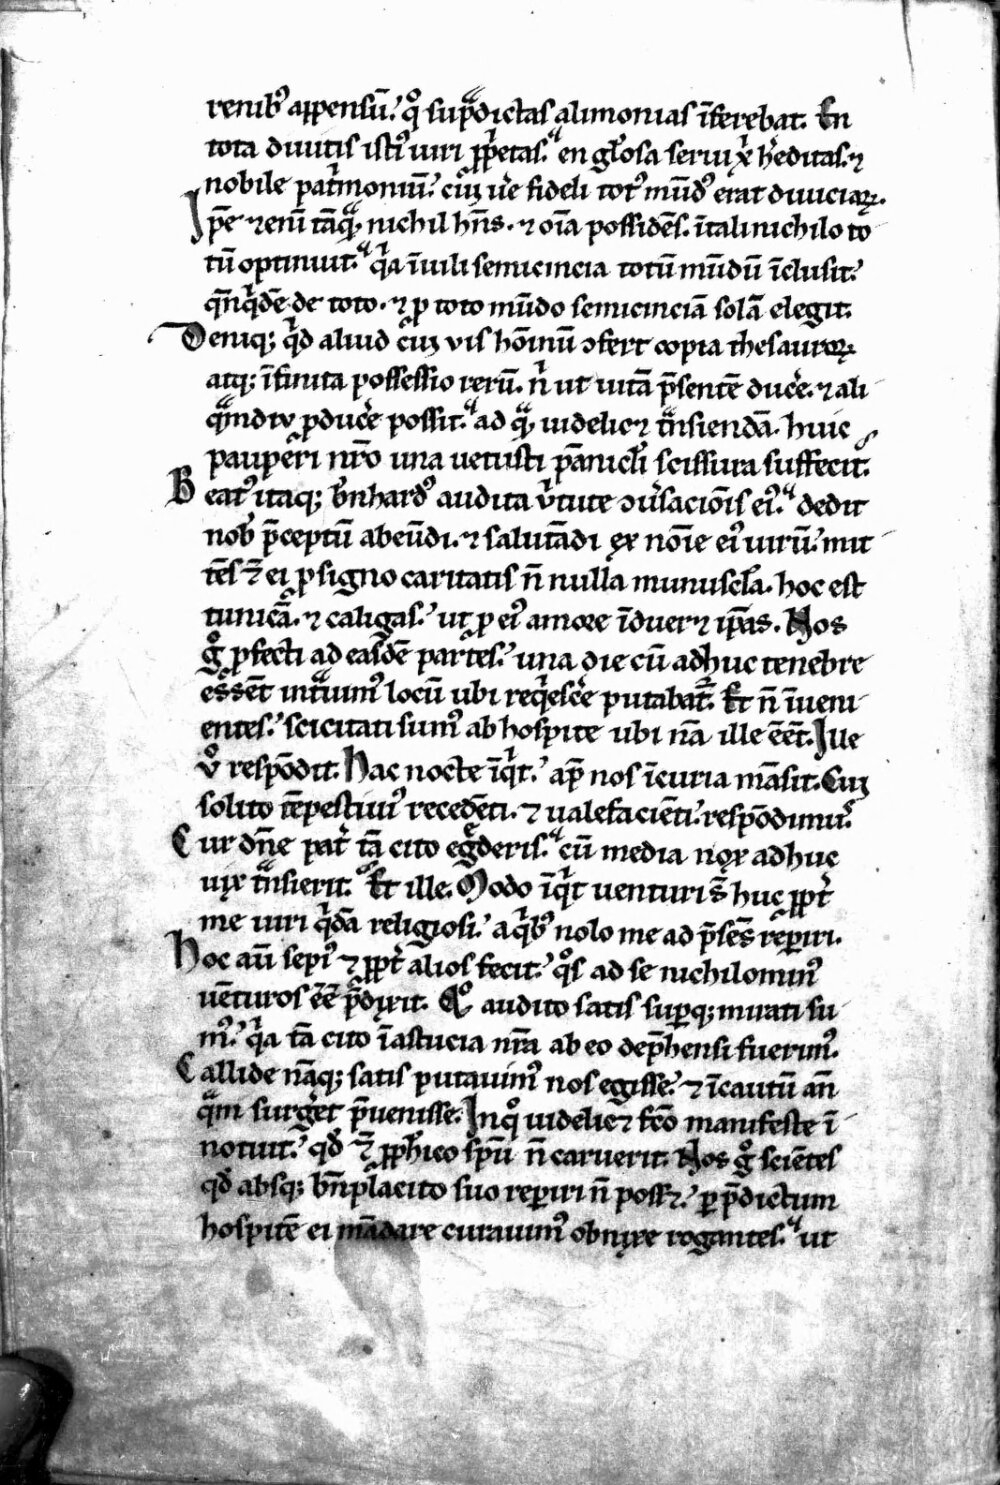 renib᷒ appensū. qͦ sup̄dictas alimonias īferebat. En
tota diuitis isti᷒ uiri p̱p̱etas. en gl̄osa serui xp̄i h̄editas. ⁊
nobile pat͛moniū. cui᷒ ūe fideli tot᷒ mūd᷒ erat diuiciaꝝ.
Ip̄e ⁊enī tāqᷓ nichil hn̄s. ⁊ oīa possidēs. ī tali nichilo to
tū optinuit. qͥa ī uili semicincia totū mūdū īclusit.
qn̄qͥdē de toto. ⁊ p toto mūdo semicinciā solā elegit.
Deniqꝫ qͥd aliud cui᷒uis hoīnū ꝯfert copia thesauroꝝ
atqꝫ īfinita possessio rerū. nͥ ut uitā p̄sentē duc̄e. ⁊ ali
qᷓmdiu ꝓduc̄e possit. ad qᷓ uidelicꝫ tᷓnsiendā. huic
paup̱eri nr̄o una uetusti pānicl̄i scissura suffecit.
Beat᷒ itaqꝫ b̄nhard᷒ audita ūtute ꝯūsaciōis ei᷒. dedit
nob̄ p̄ceptū abeūdi. ⁊ salutādi ex noīe ei᷒ uirū. mit
tēs ⁊̄ ei ꝓ signo caritatis n̄ nulla munuscl̄a. hoc est
tunicā. ⁊ caligas. ut ꝓ ei᷒ amore īduerꝫ ip̄as. Nos
gͦ ꝓfecti ad easdē partes. una die cū adhuc tenebre
essēt intᷓuim᷒ locū ubi reqͥesc̄e putabat͛. Et n̄ īueni
entes. sciscitati sum᷒ ab hospite ubi nā ille ēēt. Ille
vͦ respōdit. Hac nocte īqͥt. ap̄ nos ī curia māsit. Cui᷒
solito tēpestiui᷒ recedēti. ⁊ ualefaciēti. respōdimus.
Cur dn̄e pat̄ tā cito eg̱deris. cū media nox adhuc
uix tᷓnsierit. Et ille. Modo īqͥt uenturi s̄ huc p̱p̱t̄
me uiri qͥdā religiosi. a qͥb᷒ nolo me ad p̄ses rep̱iri.
Hoc aū sepi᷒ ⁊ p̱p̱t̄ alios fecit. qͦs ad se nichilomin᷒
uēturos ēē p̄dixit. Qͦ audito satis sup̱qꝫ mirati su
m᷒. qͥa tā cito ī astucia nr̄a ab eo dep̄hensi fuerim᷒.
Callide nāqꝫ satis putauim᷒ nos egisse. ⁊ īcautū an̄
qᷓm surḡet p̄uenisse. In qͦ uidelicꝫ fc̄o manifeste ī
notuit. qd̄ ⁊̄ p̱p̱h̄ico sp̄u n̄ caruerit. Nos gͦ sciētes
qd̄ absqꝫ b̄nplacito suo rep̱iri n̄ possꝫ. ꝑ p̄dictum
hospitē ei mādare curauim᷒ obnixe rogantes. ut